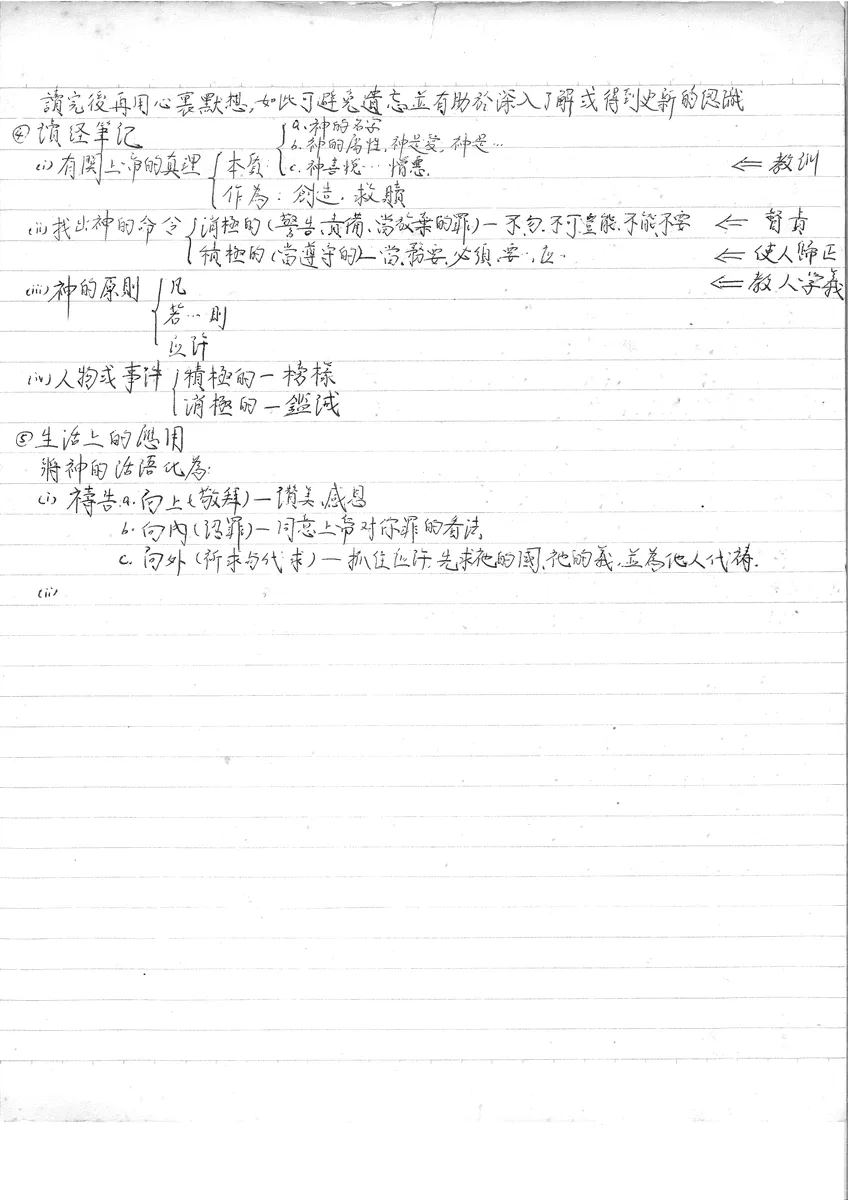 讀完後再用心裏默想,如此可避免遺忘並有助於深入了解或得到更新的認識
④ 讀経筆记
a.神的名字
b.神的属性,神是爱,神是…
(i)有関上帝的真理 本質: c.神喜悦… 憎惡. ⇐ 教训
作為:創造,救贖
(ii)找出神的命令 消極的(警告、責備、當放棄的罪)—不、勿、不可、豈能、不能、不要 ⇐ 督責
積極的(當遵守的)—當、務要、必須、要…、应… ⇐ 使人歸正
(iii)神的原則 凡 ⇐ 教人学義
若…則
应許
(iv)人物或事件 積極的—榜様
消極的—鑑誡
⑤生活上的應用
將神的话语化為:
(i) 禱告.a.向上(敬拜)—讃美,感恩
b.向内(認罪)—同意上帝对你罪的看法.
c.向外(祈求与代求)—抓住应許.先求祂的國、祂的義,並為他人代禱.
(ii)